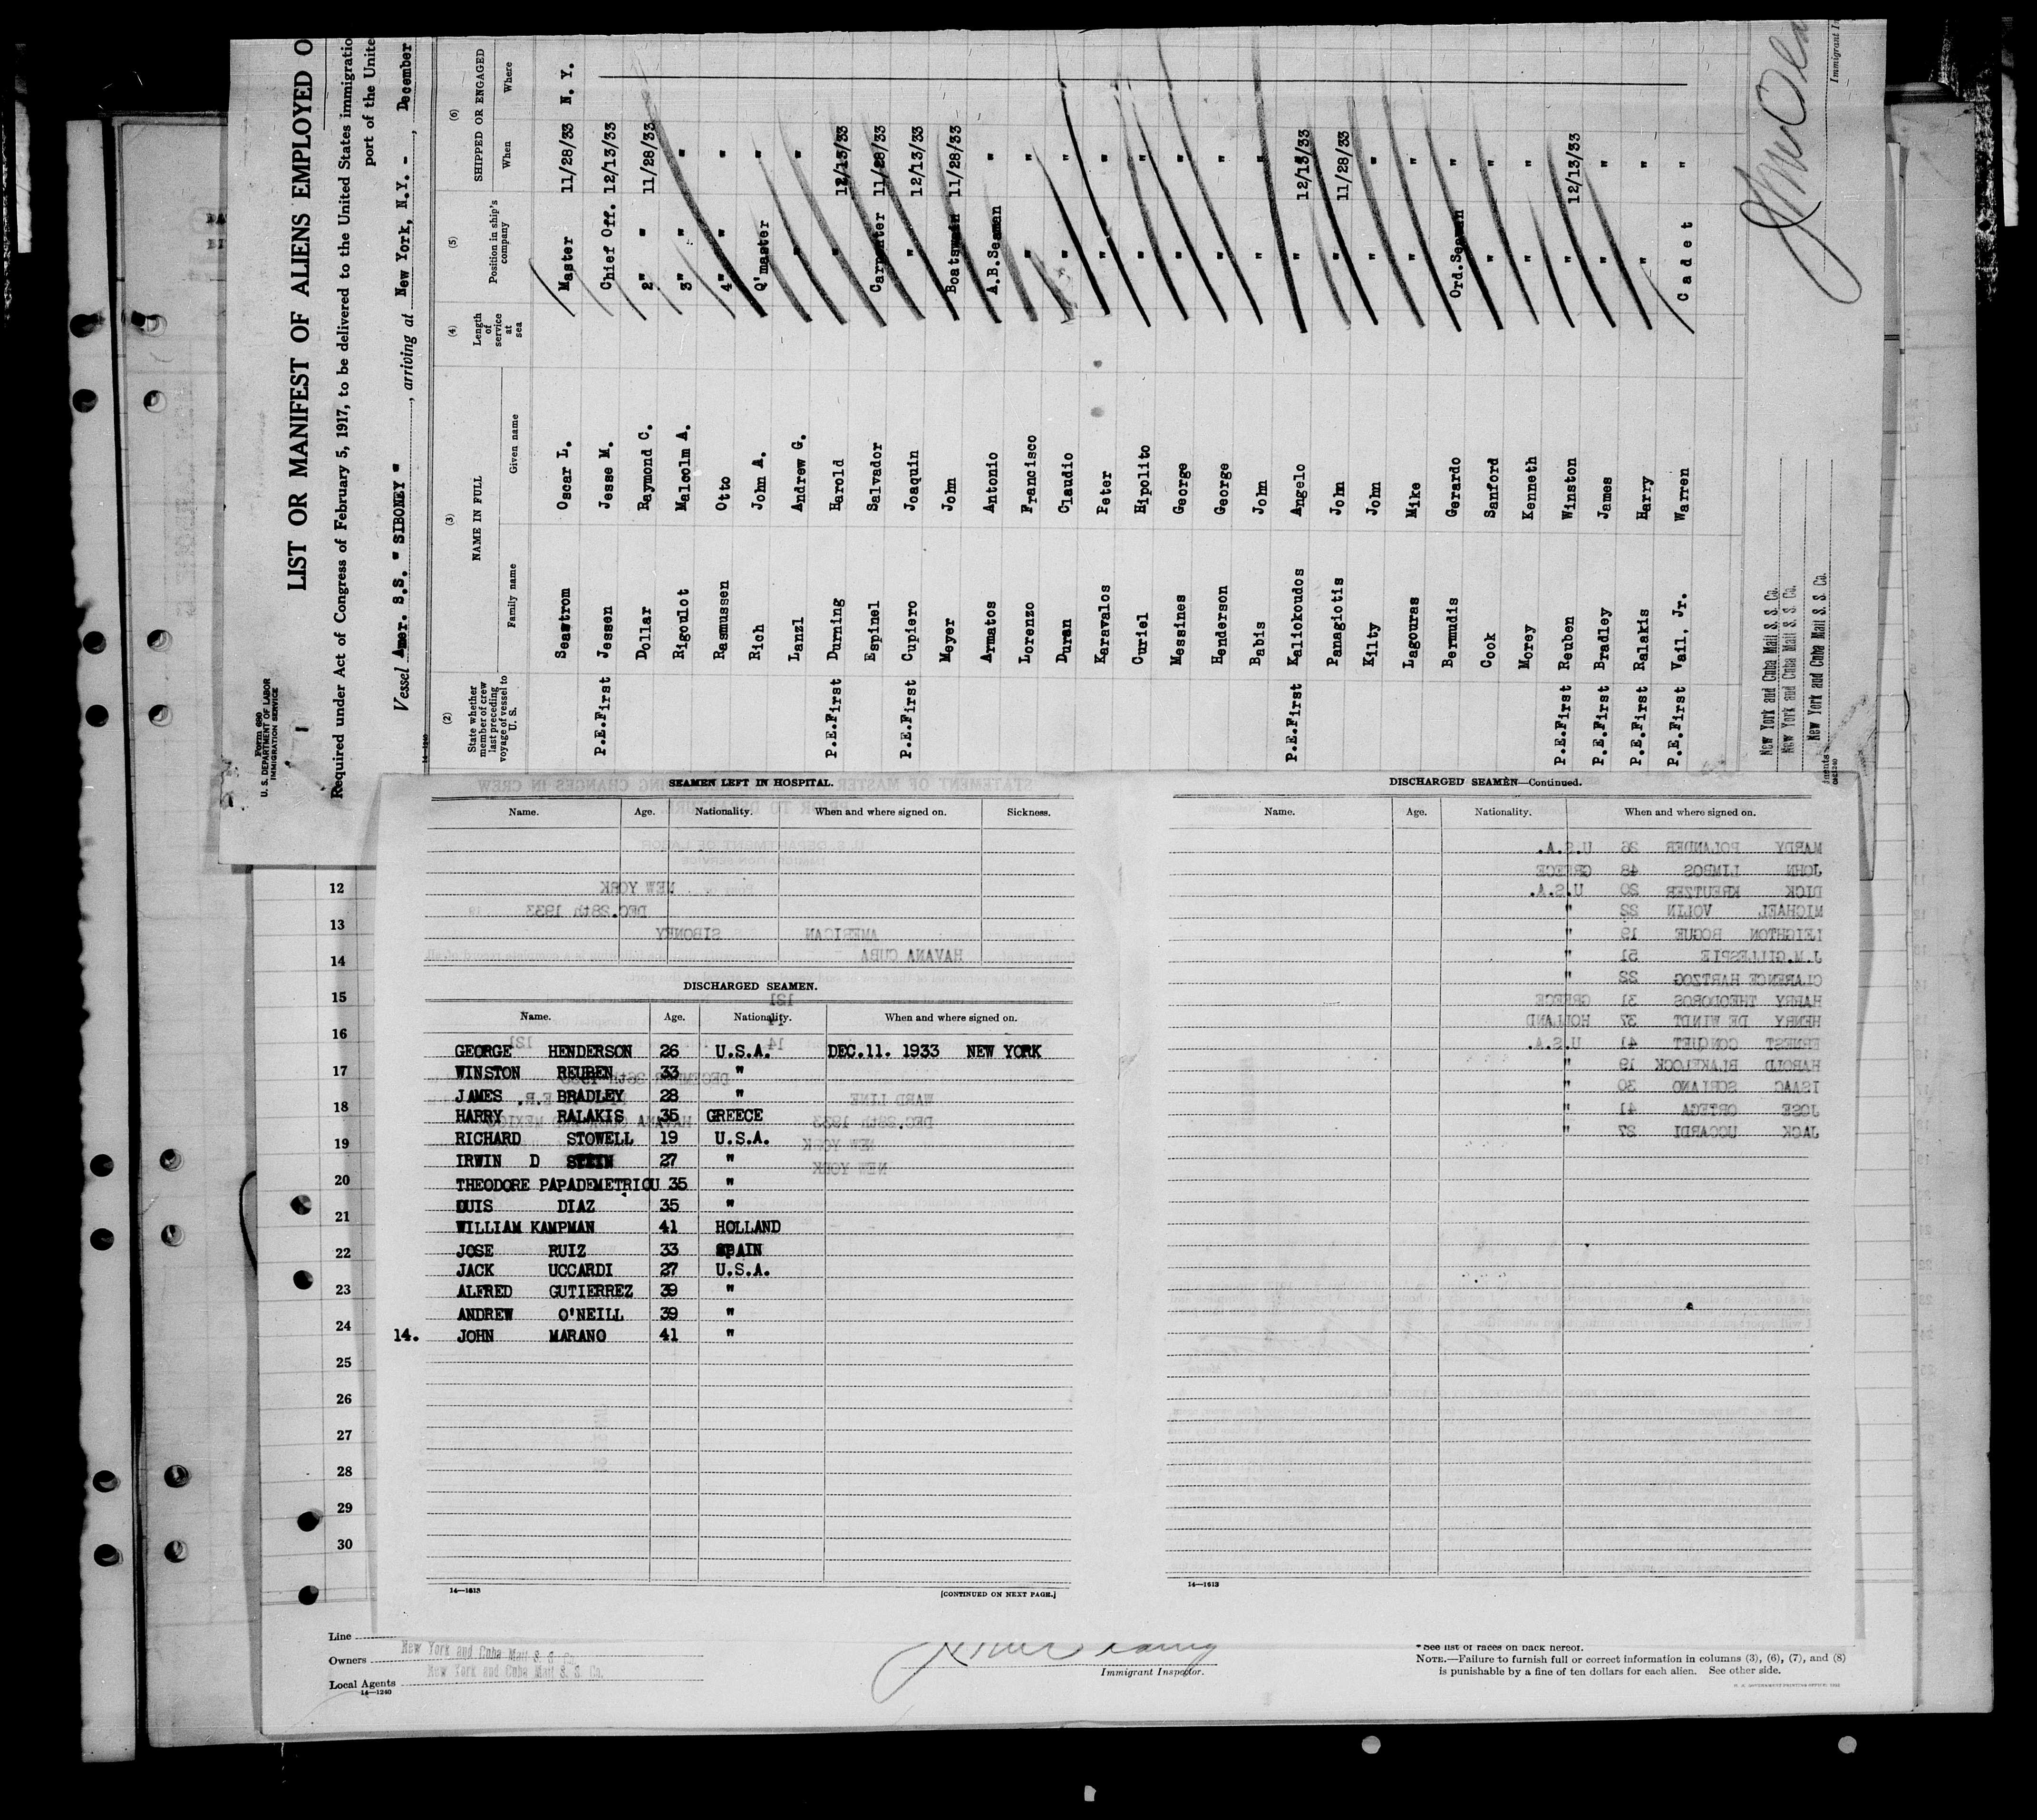 Form 680
U. S. DEPARTMENT OF LABOR
IMMIGRATION SERVICE
LIST OR MANIFEST OF ALIENS EMPLOYED O
Required under Act of Congress of February 5, 1917, to be delivered to the United States immigratio
port of the Unite
Vessel Amer. S.S. " SIBONEY ", arriving at New York, N.Y. - , December
(2) (3) (4) (5) (6)
State whether member of crew last preceding voyage of vessel to U. S. NAME IN FULL Length of service at sea Position in ship's company SHIPPED OR ENGAGED
Family name Given name When Where
Seastrom Oscar L. Master 11/28/33 N. Y.
P.E.First Jessen Jesse M. Chief Off. 12/13/33
Dollar Raymond C. 2" " 11/28/33
Rigoulot Malcolm A. 3" " "
Rasmussen Otto 4" " "
Rich John A. Q'master "
Lanzl Andrew G. " "
P.E.First Durning Harold " 12/13/33
Espinel Salvador Carpenter 11/28/33
P.E.First Cupiero Joaquin " 12/13/33
Meyer John Boatswain 11/28/33
Armatos Antonio A.B.Seaman "
Lorenzo Francisco " "
Duran Claudio " "
Karavalos Peter " "
Curiel Hipolito " "
Messines George " "
Henderson George " "
Babis John " "
P.E.First Kaliokoudos Angelo " 12/13/33
Panagiotis John " 11/28/33
Kilty John " "
Lagouras Mike " "
Bermudis Gerardo Ord.Seaman "
Cook Sanford " "
Morey Kenneth " "
P.E.First Reuben Winston " 12/13/33
P.E.First Bradley James " "
P.E.First Ralakis Harry " "
P.E.First Vail, Jr. Warren Cadet "
New York and Cuba Mail S. S. Co.
New York and Cuba Mail S. S. Co.
New York and Cuba Mail S. S. Co.
Immigrant I
SEAMEN LEFT IN HOSPITAL.
Name. Age. Nationality. When and where signed on. Sickness.
NEW YORK
DEC.28th 1933
AMERICAN SIBONEY
HAVANA CUBA
DISCHARGED SEAMEN.
121
Name. Age. Nationality. When and where signed on.
GEORGE HENDERSON 26 U.S.A. DEC.11. 1933 NEW YORK
WINSTON REUBEN 33 "
JAMES BRADLEY 28 "
HARRY RALAKIS 35 GREECE
RICHARD STOWELL 19 U.S.A.
IRWIN D STEIN 27 "
THEODORE PAPADEMETRIOU 35 "
LUIS DIAZ 35 "
WILLIAM KAMPMAN 41 HOLLAND
JOSE RUIZ 33 SPAIN
JACK UCCARDI 27 U.S.A.
ALFRED GUTIERREZ 39 "
ANDREW O'NEILL 39 "
14. JOHN MARANO 41 "
WARD LINE
DEC.28th 1933
NEW YORK
NEW YORK
14—1613
[CONTINUED ON NEXT PAGE.]
DISCHARGED SEAMEN—Continued.
Name. Age. Nationality. When and where signed on.
MARDY POLANDER 26 U.S.A.
JOHN LIMBOS 48 GREECE
DICK KREUTZER 20 U.S.A.
MICHAEL VOLIN 22 "
LEIGHTON BOGUE 19 "
J.M.GILLESPIE 51 "
CLARENCE HARTZOG 22 "
HARRY THEODOROS 31 GREECE
HENRY DE WINDT 37 HOLLAND
ERNEST CONQUET 41 U.S.A.
HAROLD BLAKELOCK 19 "
ISAAC SORIANO 30 "
JOSE ORTEGA 41 "
JACK UCCARDI 27 "
14—1613
12
13
14
15
16
17
18
19
20
21
22
23
24
25
26
27
28
29
30
Line
Owners New York and Cuba Mail S. S. Co.
Local Agents New York and Cuba Mail S. S. Co.
14—1240
Immigrant Inspector.
*See list of races on back hereof.
NOTE.—Failure to furnish full or correct information in columns (3), (6), (7), and (8)
is punishable by a fine of ten dollars for each alien. See other side.